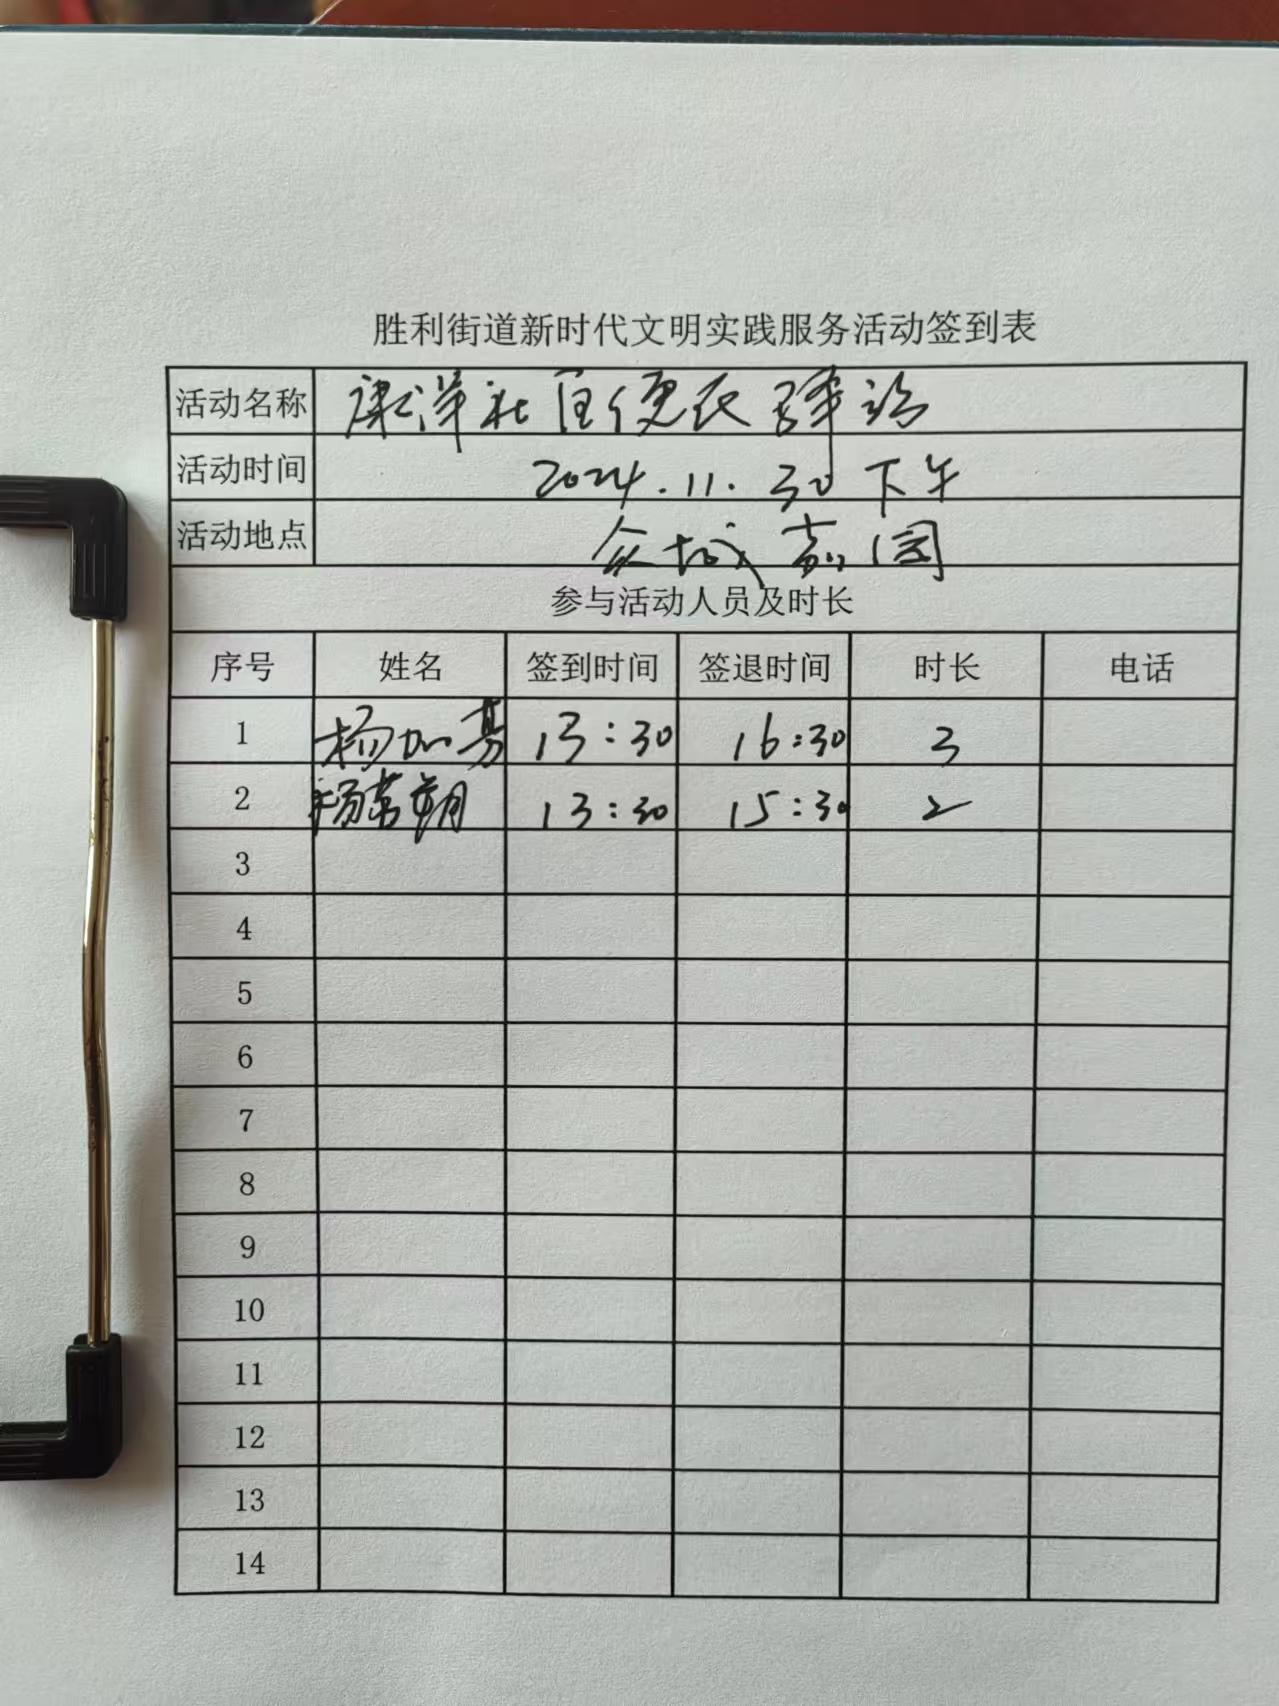 胜利街道新时代文明实践服务活动签到表
活动名称 康洋社区便民驿站
活动时间 2024.11.30下午
活动地点 众城嘉园
参与活动人员及时长
序号 姓名 签到时间 签退时间 时长 电话
1 杨加 13:30 16:30 3
2 杨 13:30 15:30 2
3
4
5
6
7
8
9
10
11
12
13
14